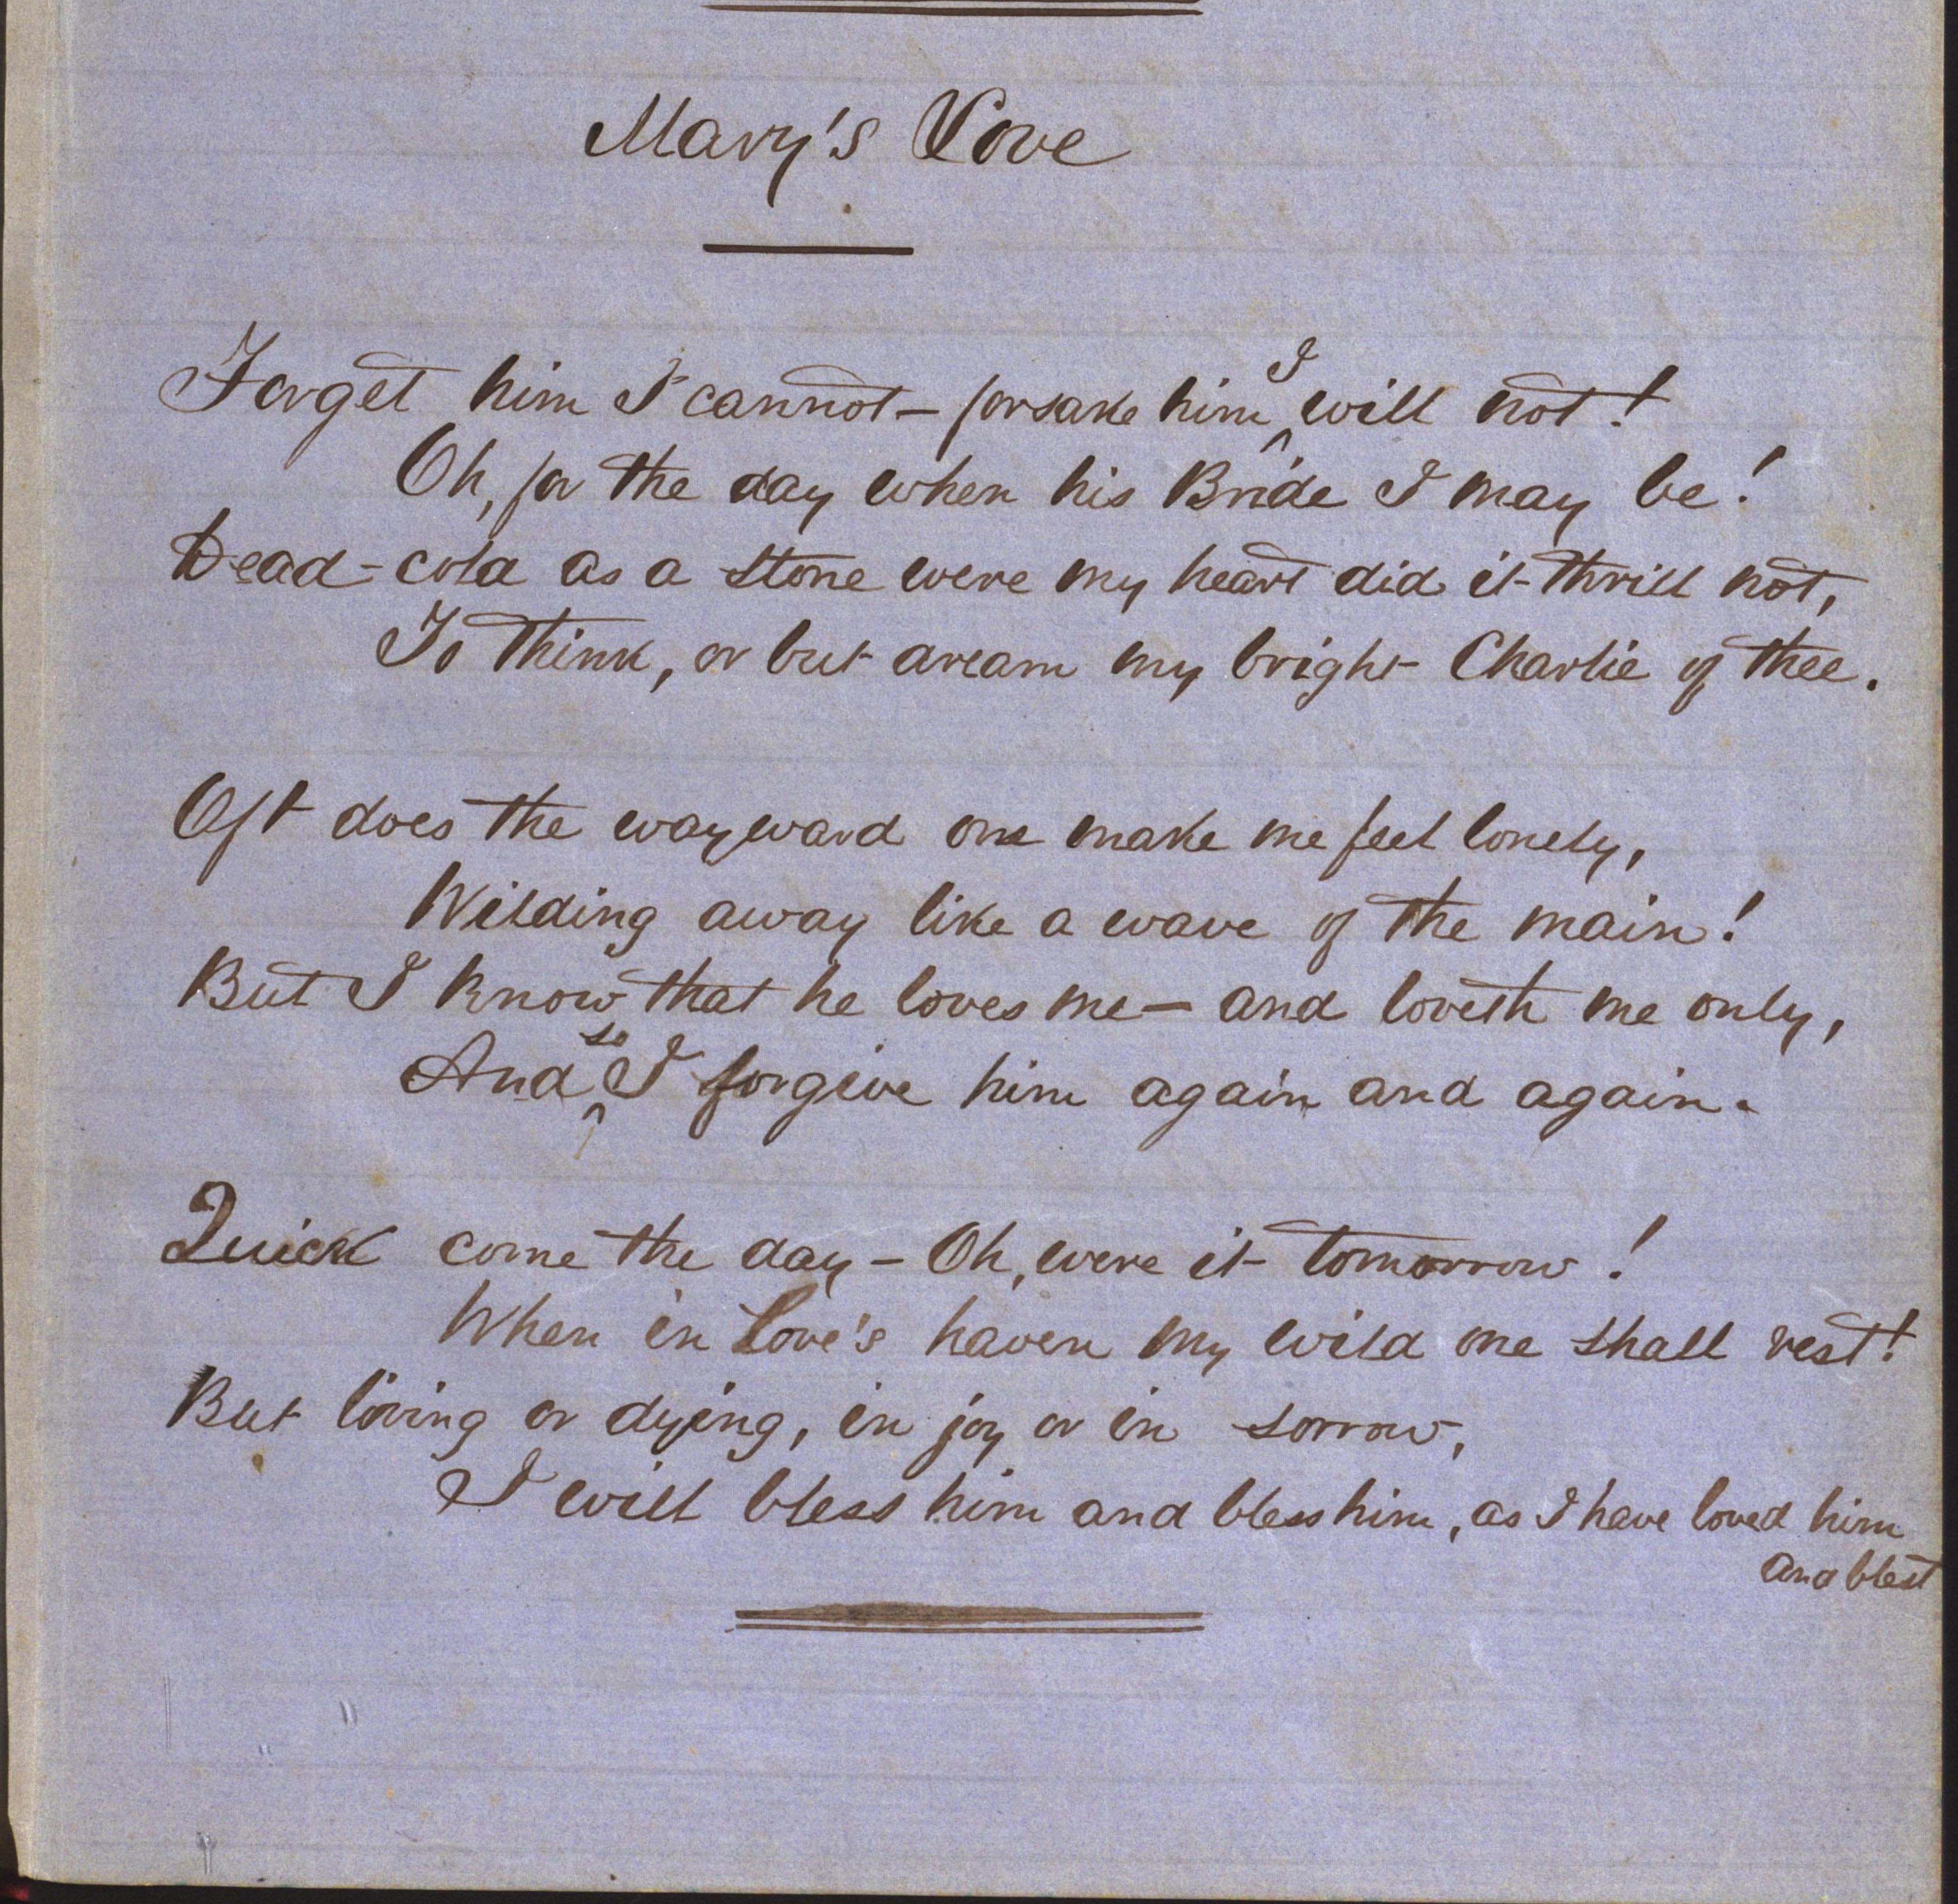 Mary's Love
Forget him I cannot – forsake him I will not!
Oh, for the day when his Bride I may be!
Dead-cold as a stone were my heart did it thrill not,
To think, or but dream my bright Charlie of thee.
Oft does the wayward one make me feel lonely,
Wilding away like a wave of the main!
But I know that he loves me – and loveth me only,
And so I forgive him again and again.
Quick come the day – Oh, were it tomorrow!
When in Love's haven my wild one shall rest!
But living or dying, in joy or in sorrow,
I will bless him and bless him, as I have loved him
and blest